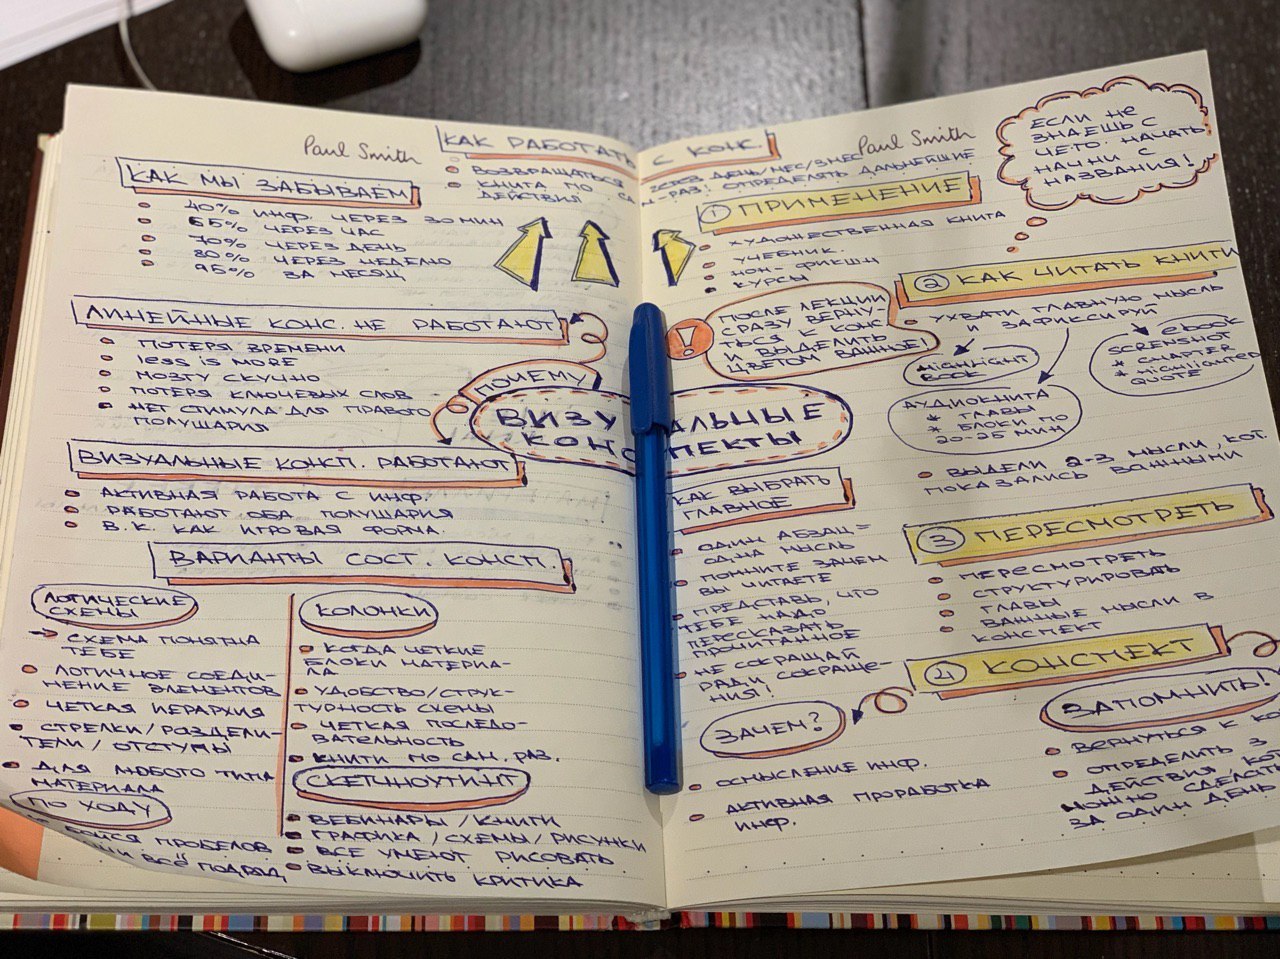 Paul Smith
КАК МЫ ЗАБЫВАЕМ
40% ИНФ. ЧЕРЕЗ 30 МИН
65% ЧЕРЕЗ ЧАС
70% ЧЕРЕЗ ДЕНЬ
80% ЧЕРЕЗ НЕДЕЛЮ
95% ЗА МЕСЯЦ
КАК РАБОТАТЬ С КОНС.
ВОЗВРАЩАТЬСЯ
КНИГА ПО
ДЕЙСТВИЯ
ЛИНЕЙНЫЕ КОНС. НЕ РАБОТАЮТ
ПОТЕРЯ ВРЕМЕНИ
less is MORE
МОЗГУ СКУЧНО
ПОТЕРЯ КЛЮЧЕВЫХ СЛОВ
НЕТ СТИМУЛА ДЛЯ ПРАВОГО
ПОЛУШАРИЯ
ПОЧЕМУ
ВИЗУАЛЬНЫЕ
КОНСПЕКТЫ
ВИЗУАЛЬНЫЕ КОНСП. РАБОТАЮТ
АКТИВНАЯ РАБОТА С ИНФ.
РАБОТАЮТ ОБА ПОЛУШАРИЯ
В.К. КАК ИГРОВАЯ ФОРМА
ВАРИАНТЫ СОСТ. КОНСП.
ЛОГИЧЕСКИЕ
СХЕМЫ
СХЕМА ПОНЯТНА
ТЕБЕ
ЛОГИЧНОЕ СОЕДИ-
НЕНИЕ ЭЛЕМЕНТОВ
ЧЕТКАЯ ИЕРАРХИЯ
СТРЕЛКИ/РАЗДЕЛИ-
ТЕЛИ/ОТСТУПЫ
ДЛЯ ЛЮБОГО ТИПА
МАТЕРИАЛА
ПО ХОДУ
БОЙСЯ ПРОБЕЛОВ
ВСЁ ПОДРЯД
КОЛОНКИ
КОГДА ЧЕТКИЕ
БЛОКИ МАТЕРИА-
ЛА
УДОБСТВО/СТРУК-
ТУРНОСТЬ СХЕМЫ
ЧЕТКАЯ ПОСЛЕДО-
ВАТЕЛЬНОСТЬ
КНИГИ ПО САМ. РАЗ.
СКЕТЧНОУТИНГ
ВЕБИНАРЫ/КНИГИ
ГРАФИКА/СХЕМЫ/РИСУНКИ
ВСЕ УМЕЮТ РИСОВАТЬ
ВЫКЛЮЧИТЬ КРИТИКА
Paul Smith
ЧЕРЕЗ ДЕНЬ/МЕС/
РАЗ! ОПРЕДЕЛЯТЬ ДАЛЬНЕЙШИЕ
1 ПРИМЕНЕНИЕ
ХУДОЖЕСТВЕННАЯ КНИГА
УЧЕБНИК.
НОН-ФИКШН
КУРСЫ
ЕСЛИ НЕ
ЗНАЕШЬ С
ЧЕГО НАЧАТЬ
НАЧНИ С
НАЗВАНИЯ!
!
ПОСЛЕ ЛЕКЦИИ
СРАЗУ ВЕРНУ-
ТЬСЯ К КОНС.
И ВЫДЕЛИТЬ
ЦВЕТОМ ВАЖНОЕ!
2 КАК ЧИТАТЬ КНИГИ
УХВАТИ ГЛАВНУЮ МЫСЛЬ
И ЗАФИКСИРУЙ
HIGHLIGHT
BOOK
ebook
SCREENSHOT
* CHAPTER
* HIGHLIGHTED
QUOTE
АУДИОКНИГА
* ГЛАВЫ
* БЛОКИ ПО
20-25 МИН
ВЫДЕЛИ 2-3 МЫСЛИ, КОТ.
ПОКАЗАЛИСЬ ВАЖНЫМИ
КАК ВЫБРАТЬ
ГЛАВНОЕ
ОДИН АБЗАЦ =
ОДНА МЫСЛЬ
ПОМНИТЕ ЗАЧЕМ
ВЫ ЧИТАЕТЕ
ПРЕДСТАВЬ, ЧТО
ТЕБЕ НАДО
ПЕРЕСКАЗАТЬ
ПРОЧИТАННОЕ
НЕ СОКРАЩАЙ
РАДИ СОКРАЩЕ-
НИЯ!
3 ПЕРЕСМОТРЕТЬ
ПЕРЕСМОТРЕТЬ
СТРУКТУРИРОВАТЬ
ГЛАВЫ
ВАЖНЫЕ МЫСЛИ В
КОНСПЕКТ
4 КОНСПЕКТ
ЗАЧЕМ?
ОСМЫСЛЕНИЕ ИНФ.
АКТИВНАЯ ПРОРАБОТКА
ИНФ.
ЗАПОМНИТЬ!
ВЕРНУТЬСЯ К
ОПРЕДЕЛИТЬ 3
ДЕЙСТВИЯ, КОТ
МОЖНО СДЕЛАТЬ
ЗА ОДИН ДЕНЬ